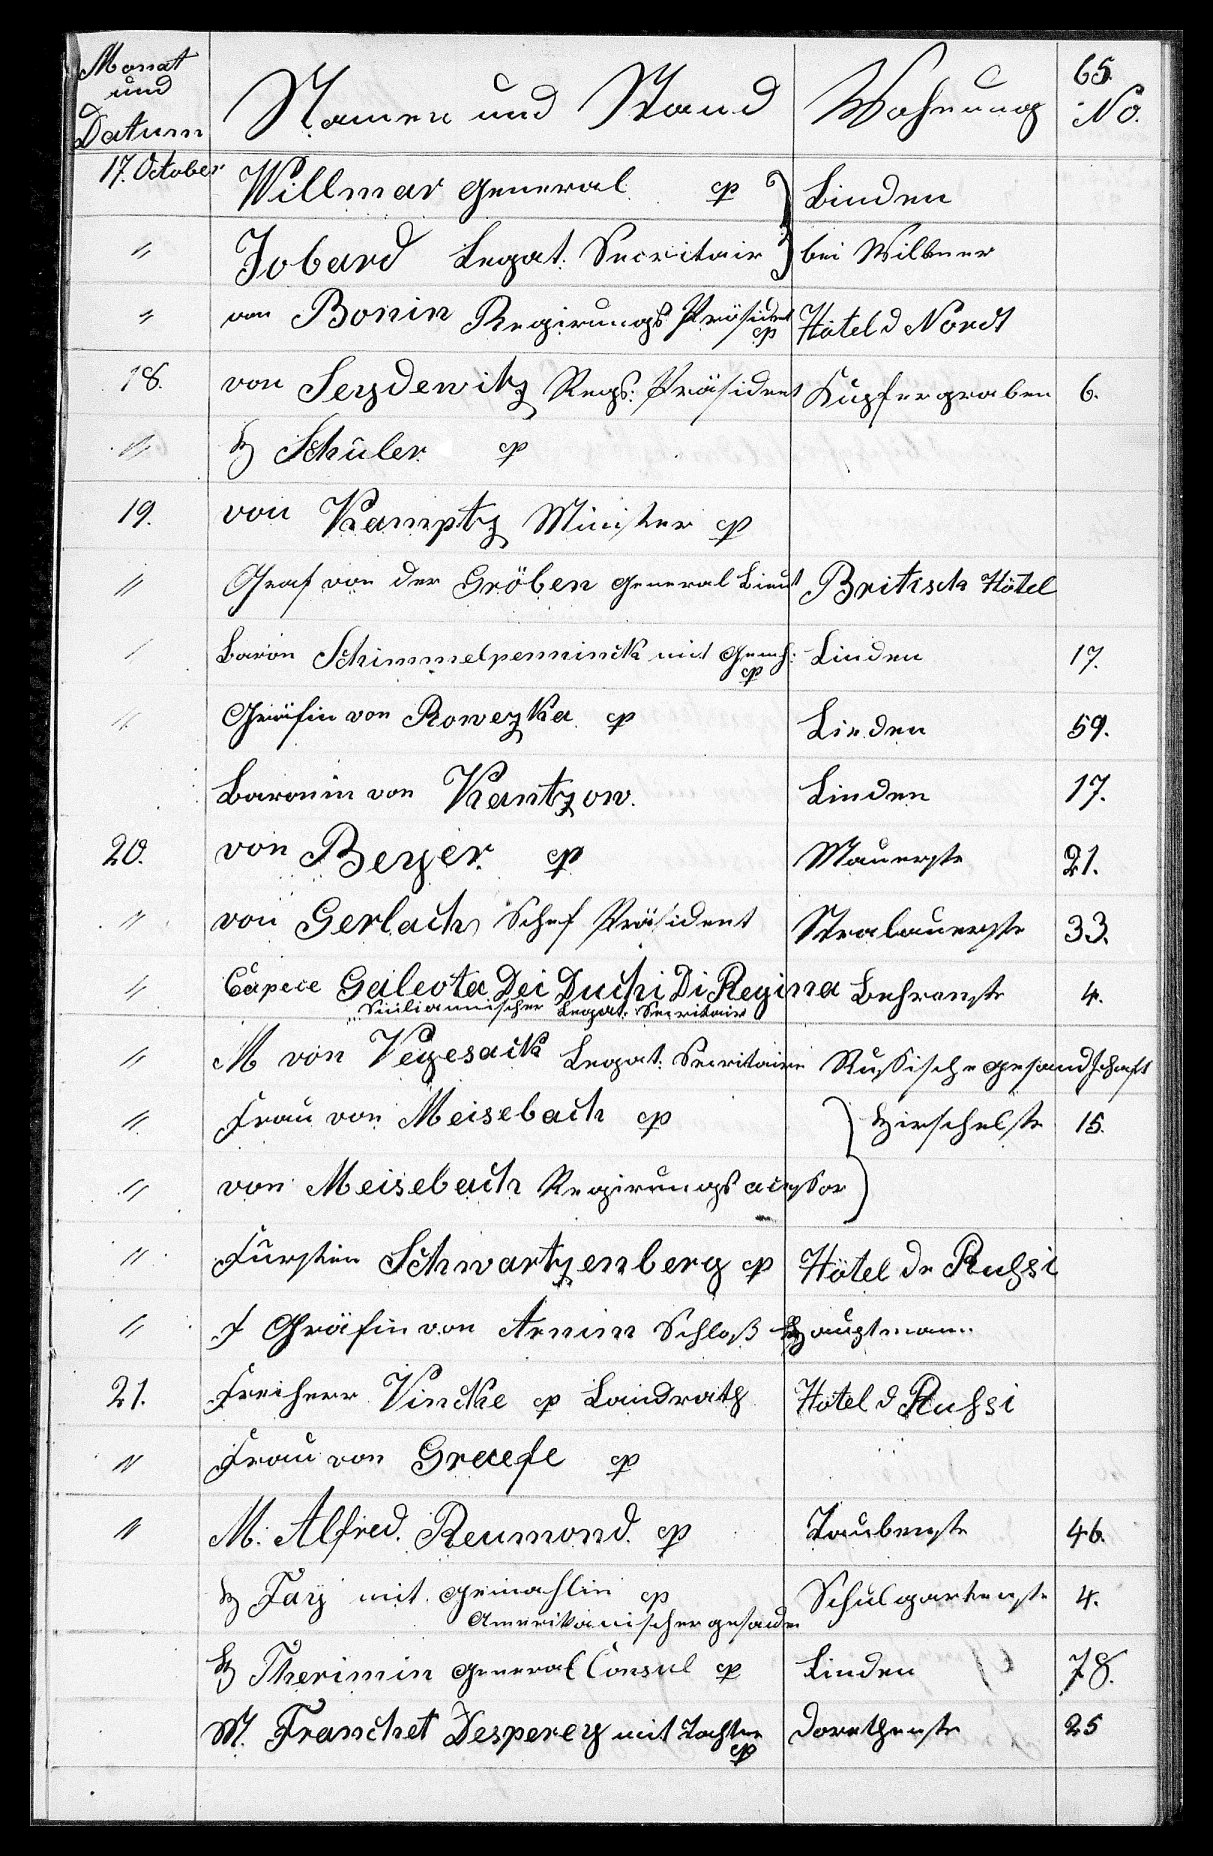 65.
Monat und Datum Namen und Stand Wohnung No.
17. October Willmar General cp } Linden
" Jobard Legat: Secritair } bei Willmer
" von Bonin Regirungs Präsident cp Hôtel d Nordt
18. von Seydewitz Regs: Präsident Kupfergraben 6.
" H Schüler cp
19. von Kamptz Minister cp
" Graf von der Gröben General Lieut Britisch Hôtel
" Baron Schimmelpenninck mit Gemh: cp Linden 17.
" Gräfin von Rowezka cp Linden 59.
Baronin von Kantzow. Linden 17.
20. von Beyer. cp Mauerstr 21.
" von Gerlach Schef Präsident Stralauerstr 33.
" Capece Galeota Dei Duchi Di Regina Behrenstr 4.
Sicilianischer Legat: Secritair
" M von Vegesack Legat: Secritaire Russische Gesandschaft
" Frau von Meisebach cp } Hirschelstr 15.
" von Meisebach Regirungs acessor }
" Fürstin Schwartzenberg cp Hôtel de Russi
" F Gräfin von Arnim Schloß Hauptmann
21. Freiherr Vincke cp Landrath Hotel d Russi
" Frau von Graefe cp
" M. Alfred. Reumond. cp Taubenstr 46.
H Fay mit Gemahlin cp Schulgartenstr 4.
Amerikanischer Gesande
H Therimin General Consul cp Linden 78.
M. Franchet Desperey mit Tochter cp Dorethenstr 25